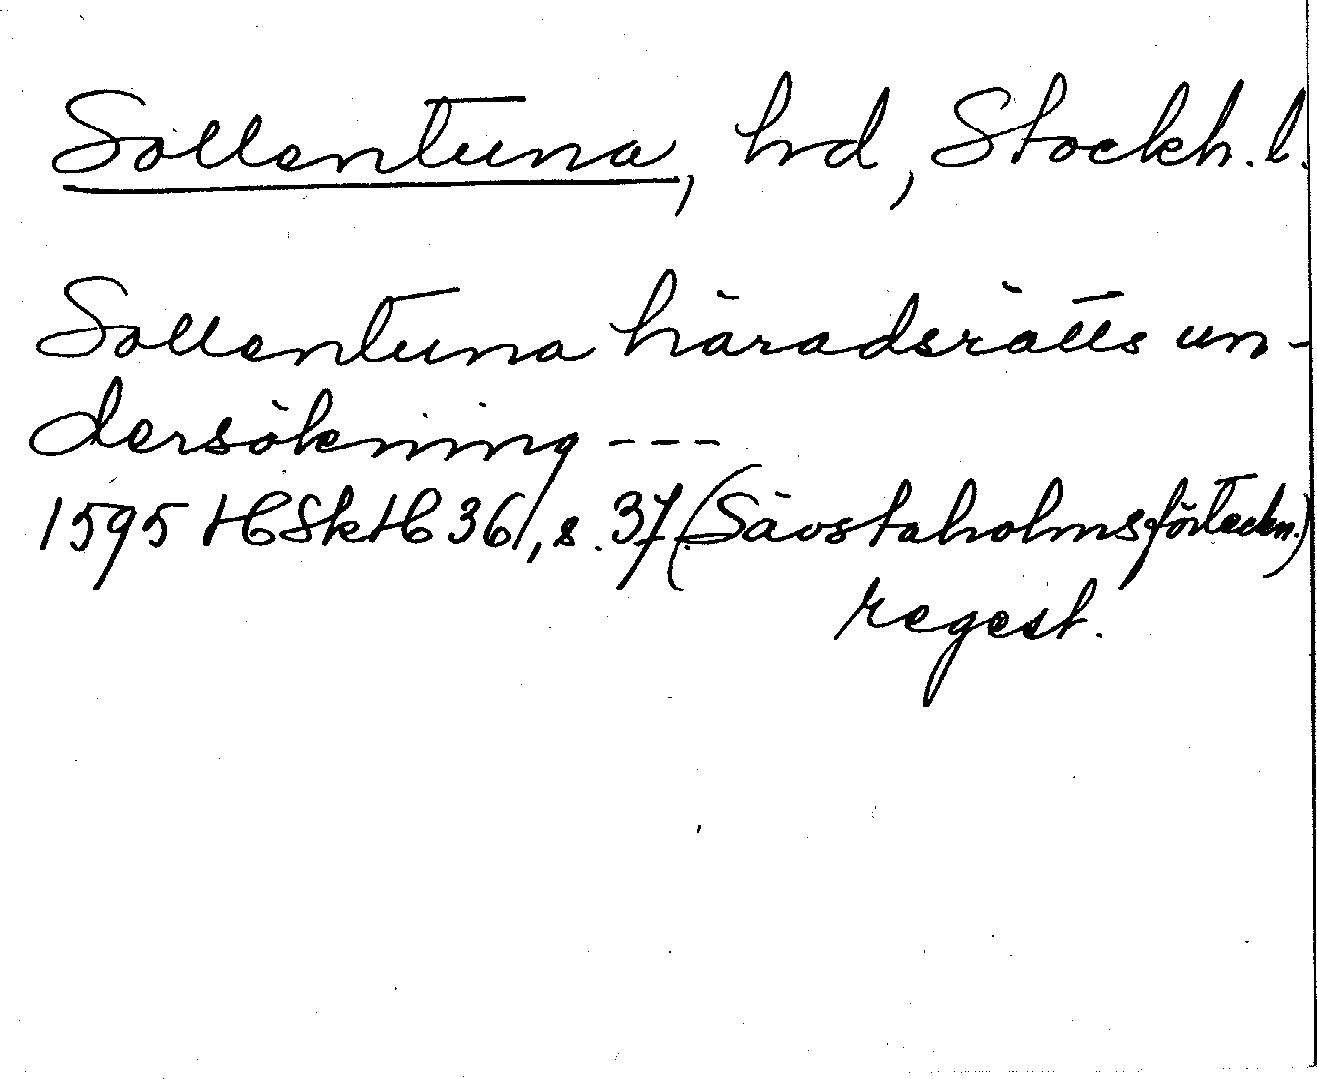 Sollentuna, hrd, Stockh. l.
Sollentuna häradsrätts un-
dersökning ---
1595 HSkH 36, s. 37 (Sävstaholmsförteckn.)
regest.